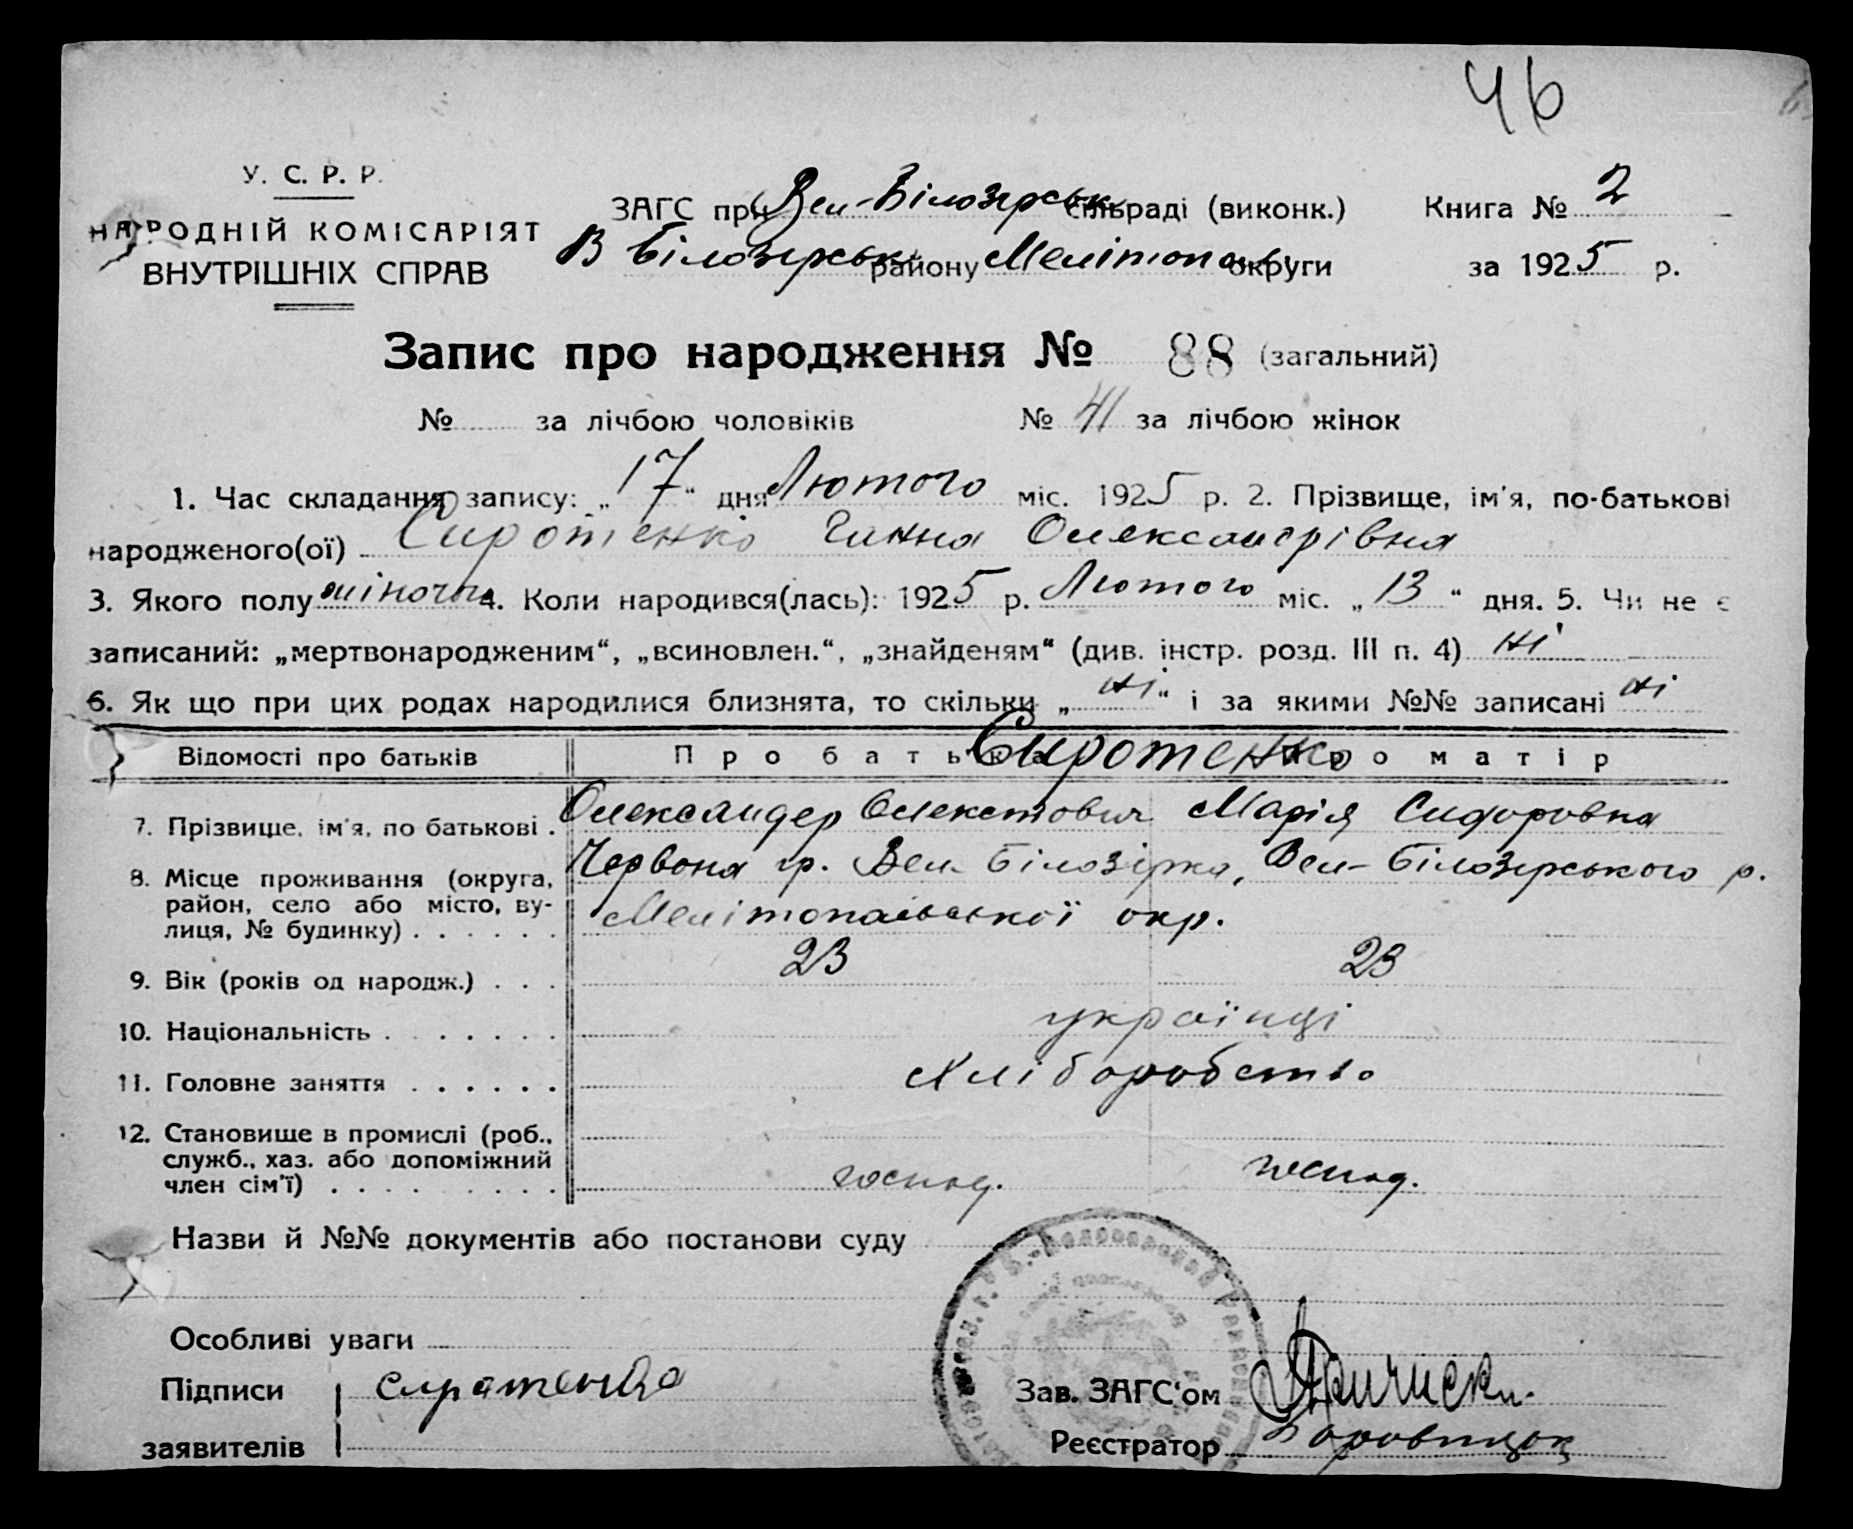 46
У. С. Р. Р.
НАРОДНІЙ КОМІСАРІЯТ
ВНУТРІШНІХ СПРАВ
ЗАГС при Вел-Білозерськ сільраді (виконк.) Книга № 2
В Білозерськ району Мелітопол округи за 1925 р.
Запис про народження № 88 (загальний)
№ за лічбою чоловіків № 41 за лічбою жінок
1. Час складання запису: „17" дня Лютого міс. 1925 р. 2. Прізвище, ім'я, по-батькові
народженого(ої) Сиротенко Ганна Олександрівна
3. Якого полу жіночог 4. Коли народився(лась): 1925 р. Лютого міс. „13" дня. 5. Чи не є
записаний: „мертвонародженим", „всиновлен.", „знайденям" (див. інстр. розд. III п. 4) ні
6. Як що при цих родах народилися близнята, то скільки „ні" і за якими №№ записані ні
Відомості про батьків Про батька Про матір
Сиротенко
7. Прізвище, ім'я, по батькові . Олександер Олекстович Марія Сидоровна
8. Місце проживання (округа, район, село або місто, вулиця, № будинку) . . . . . . Червона гр. Вел-Білозірка, Вел-Білозерського р.
Мелітопальської окр.
9. Вік (років од народж.) . . . 23 23
10. Національність . . . . . . . українці
11. Головне заняття . . . . . . Хліборобство
12. Становище в промислі (роб., служб., хаз. або допоміжний член сім'ї) . . . . . . . . . господ. господ.
Назви й №№ документів або постанови суду
Особливі уваги
Підписи сиратенко Зав. ЗАГС'ом
заявителів Реєстратор